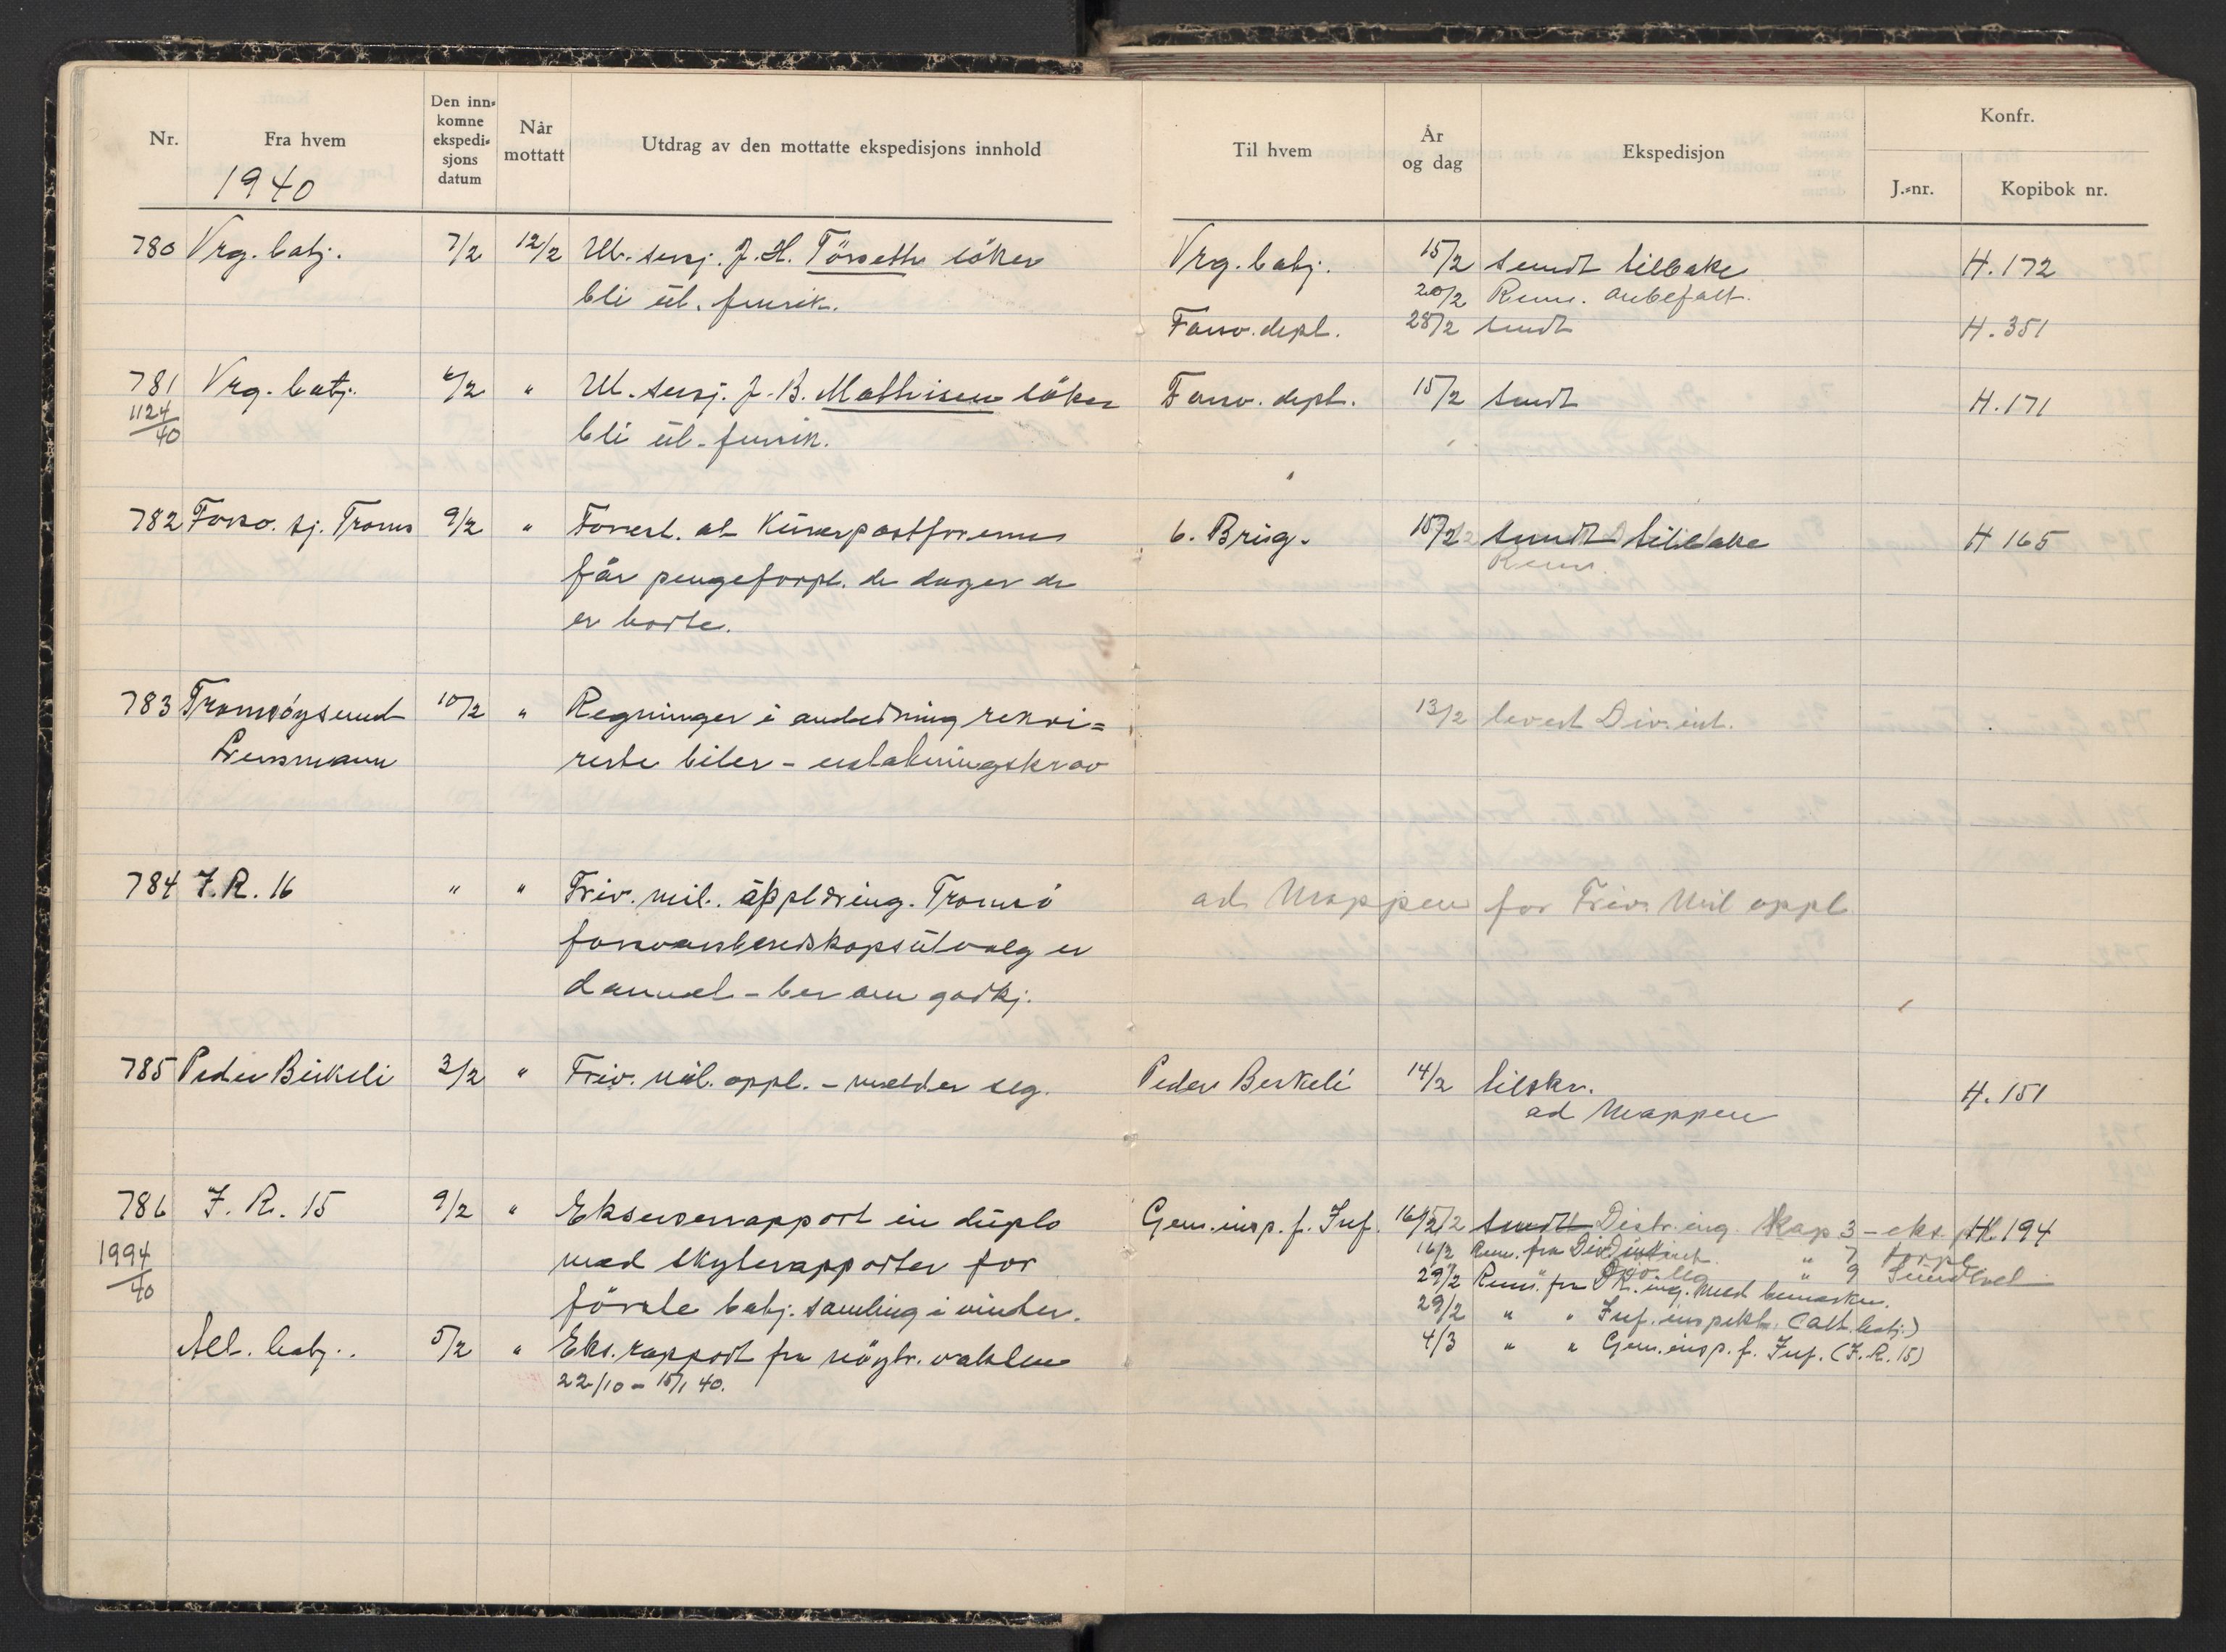 Nr. Fra hvem Den inn- komne ekspedi- sjons datum Når mottatt Utdrag av den mottatte ekspedisjons innhold Til hvem År og dag Ekspedisjon Konfr. J.-nr. Kopibok nr.
1940
780 Vrg. batj. 7/2 12/2 Ut. sersj. J. H. Törseth söker Vrg. batj. 15/2 sendt tilbake H. 172
bli üt. fenrik. 20/2 Rem. anbefalt.
Forsv. dept. 28/2 sendt H. 351
781 Vrg. batj. 6/2 " Ut. sersj. J. B. Mathisen söker Forsv. dept. 15/2 sendt H. 171
1124/40 bli üt. fenrik.
782 Forso. sj. Troms 9/2 " Forest. at Kürerpostförerne 6. Brig. 15/2 sendt tilbake H 165
får pengeforpl. de dager de Rem.
er borte.
783 Tromsöysund 10/2 " Regninger i anledning rekvi= 13/2 levert Div. int.
Lensmann rerte biler - erstatningskrav
784 I.R. 16 " " Friv. mil. opplæring. Tromsö ad Mappen for Friv. Mil oppl.
forsvarsberedskapsütvalg er
dannet - ber om godkj.
785 Peder Birkeli 3/2 " Friv. mil. oppl. - melder seg. Peder Berkeli 14/2 tilskr. H. 151
ad Mappen
786 I. R. 15 9/2 " Ekserserrapport in düplo Gen. insp. f. Inf. 16/2 sendt Distr. ing. Kap 3 - eks. H. 194
1994/40 med skyterapporter for 16/2 Rem. fra Div. " 7
förste batj. samling i vinter. 29/2 Rem. fra D.K. ing. med bemerkn. " 9
29/2 " " Inf. inspekt. (Alt. batj.)
Alt. batj. 5/2 " Eks. rapport fra nöytr. vakten 4/3 " " Gen. insp. f. Inf. (I. R. 15)
22/10 - 15/1 40.